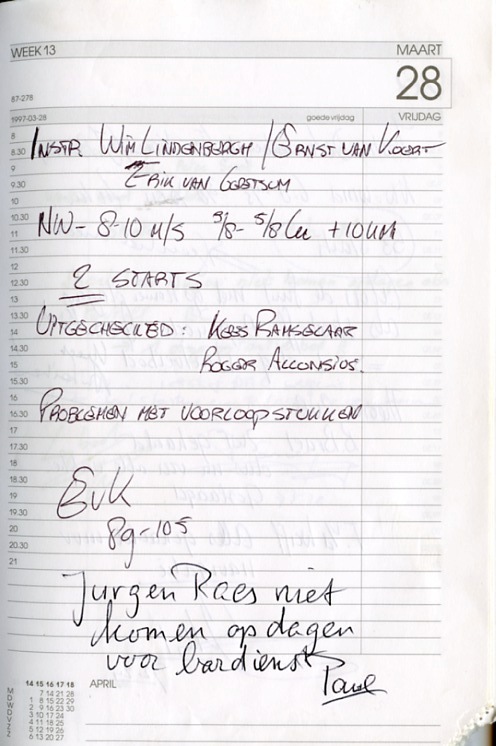 WEEK 13
MAART
28
87-278
1997-03-28
goede vrijdag
VRIJDAG
8
INSTR. WIM LINDENBERGH / ERNST VAN
8.30
9
ERIK VAN
9.30
10
10.30
NW- 8-10 M/S 3/8- 5/8 Cu +10KM
11
11.30
12
2 STARTS
12.30
13
13.30
UITGECHECKED: KEES RAMSELAAR
14
14.30
ROGER
15
15.30
16
PROBLEMEN MET VOORLOOPSTUKKEN
16.30
17
17.30
18
18.30
EvK
19
19.30
20
Pg-105
20.30
21
Jurgen Raes niet
komen opdagen
voor bardienst
Paul
14 15 16 17 18 APRIL
M 7 14 21 28
D 1 8 15 22 29
W 2 9 16 23 30
D 3 10 17 24
V 4 11 18 25
Z 5 12 19 26
Z 6 13 20 27